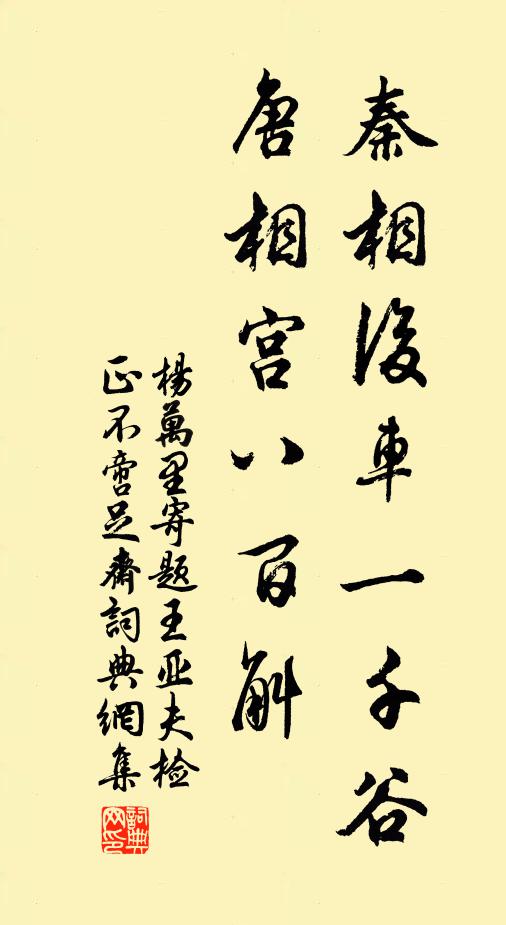 秦相後車一千谷
唐相宫八百斛
楊萬里寄題王亚夫检
正不啻足齋詞典網集
詞典网印